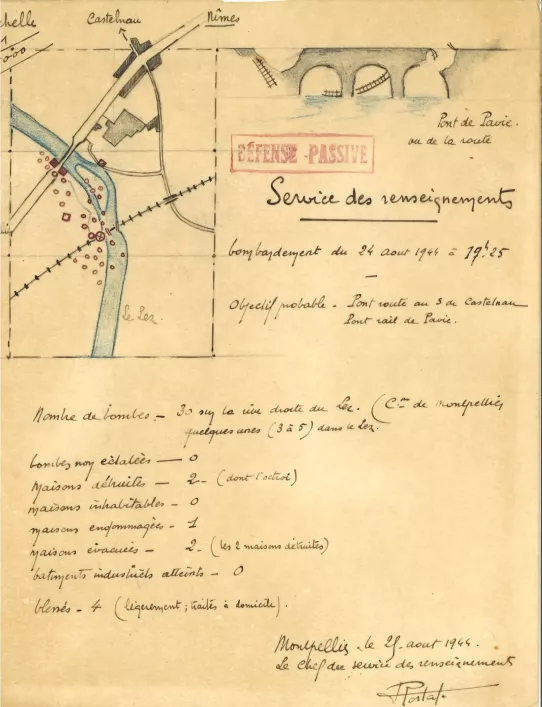 chelle
Castelnau
Nîmes
Le Lez
Pont de Pavie.
ou de la route
DÉFENSE-PASSIVE
Service des renseignements
bombardement du 24 aout 1944 à 19h25
Objectif probable - Pont route au S de Castelnau
Pont rail de Pavie.
Nombre de bombes - 30 sur la rive droite du Lez. (Cne de Montpellier
quelques unes (3 à 5) dans le Lez.
bombes non éclatées — 0
Maisons détruites — 2 - (dont l'octroi)
maisons inhabitables - 0
maisons endommagées - 1
maisons évacuées - 2 - (les 2 maisons détruites)
batiments industriels atteints - 0
blessés - 4 (légèrement ; traités à domicile).
Montpellier - le 25 - aout 1944.
Le Chef du service des renseignements